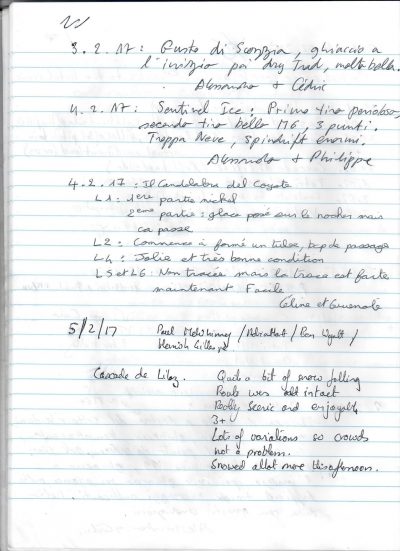 3.2.17: Gusto di Scozzia, ghiaccio a
l'inizio poi dry Tred, molto bella.
Alessandro + Cédric
4.2.17: Sentinel Ice: Primo tiro pericoloso,
secondo tiro bello M6, 3 punti.
Troppa Neve, Spindrift enormi.
Alessandro + Philippe
4.2.17: Il Candelabro del Coyote
L1: 1ère partie nickel
2ème partie: glace posé sur le rocher mais
ça passe
L2: Commence à formé un tube, bcp de passage
L4: Jolie et très bonne condition
L5 et L6: Non tracée mais la trace est faite
maintenant Facile
Céline et Gwenolé
5/2/17 Paul
Hamish Gillespie
Cascade de Lillaz. Quite a bit of snow falling
Route was still intact
Really Scenic and enjoyable
3+
Lots of variations so crowds
not a problem.
Snowed allot more this afternoon.